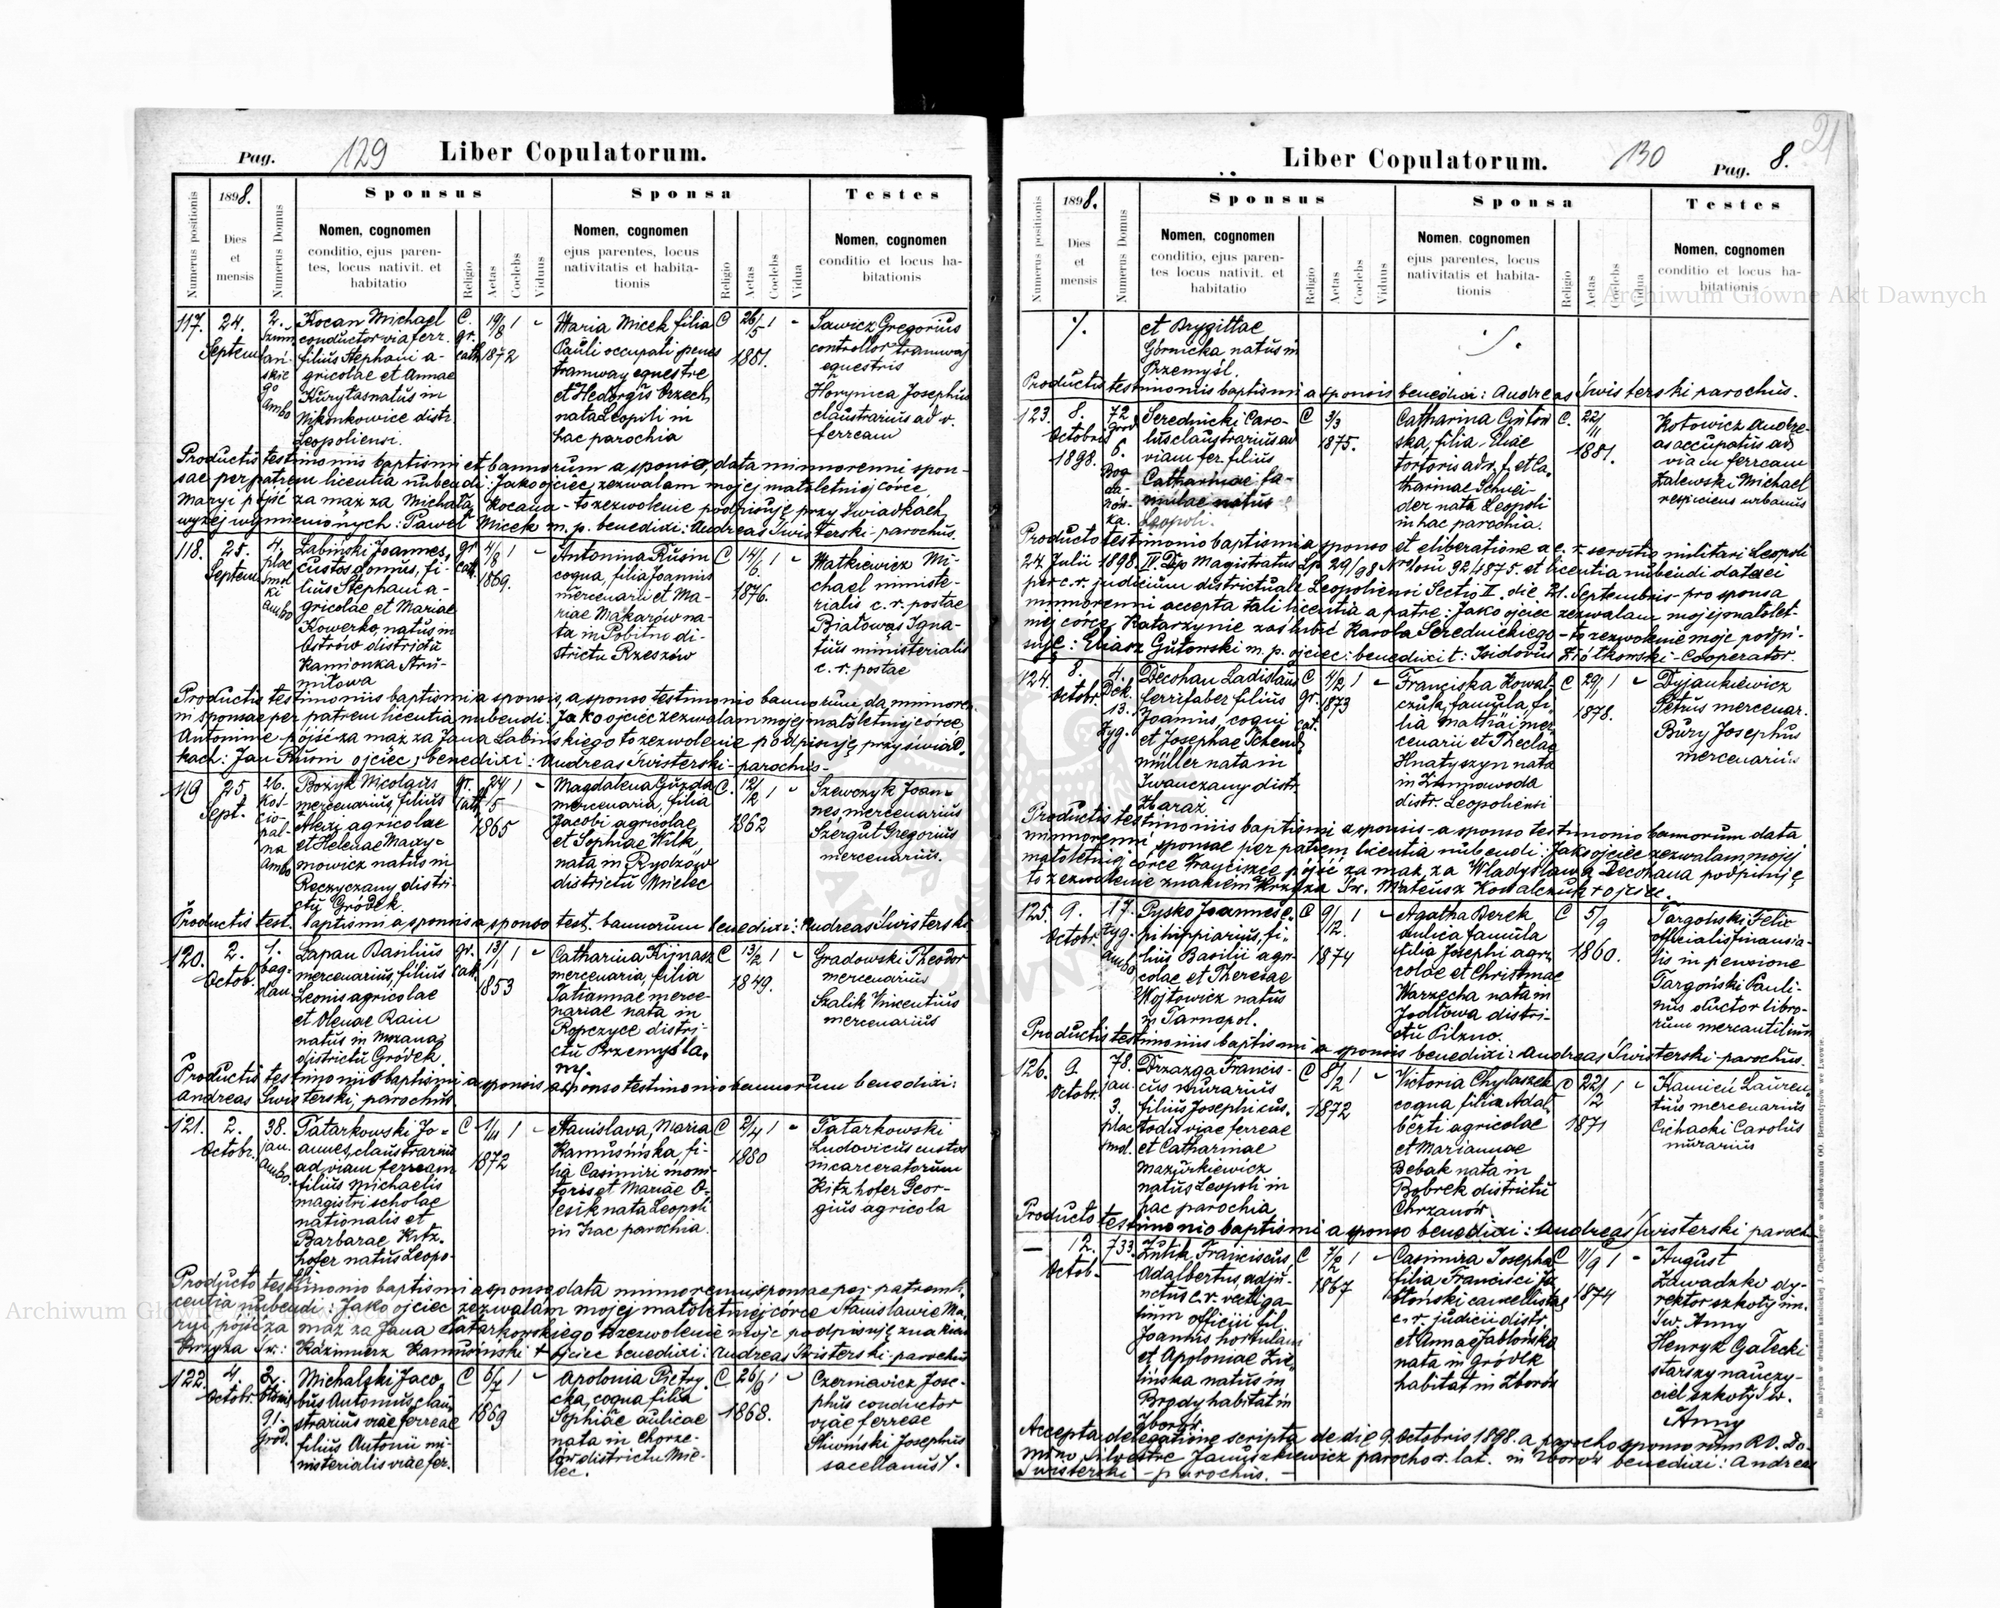 Pag. 129 Liber Copulatorum.
Numerus positionis
1898.
Dies
et
mensis
Numerus Domus
Sponsus
Nomen, cognomen
conditio, ejus paren-
tes, locus nativit. et
habitatio
Religio
Aetas
Coelebs
Viduus
Sponsa
Nomen, cognomen
ejus parentes, locus
nativitatis et habita-
tionis
Religio
Aetas
Coelebs
Vidua
Testes
Nomen, cognomen
conditio et locus ha-
bitationis
117.
24.
Septem
2.
Ambo
Kocan Michael
conductor viae ferr.
filius Stephani a-
gricolae et Annae
Kurytas natus in
Nikonkowice distr.
Leopoliensi.
C.
gr.
cath.
19/8
1872
1
Maria Micek filia
Pauli occupati penes
tramway equestre
et Hedvigis Orzech
nata Leopoli in
hac parochia
C
26/5
1881.
1
Sawicz Gregorius
controllor tramway
equestris
Horynica Josephus
claustrarius ad v.
ferream
Productis testimoniis baptismi et bannorum a sponso, data minorenni spon-
sae per patrem licentia nubendi: Jako ojciec zezwalam mojej małoletniej córce
Maryi pójść za mąż za Michała Kocana - to zezwolenie podpisuję przy świadkach
wyżej wymienionych: Paweł Micek m. p. benedixi: Andreas Świsterski - parochus.
118.
25.
Septem
4.
plac
Smol
ki
Ambo
Łabiński Joannes,
custos domus, fi-
lius Stephani a-
gricolae et Mariae
Kowerko, natus in
Ostrów districtu
Kamionka Stru-
miłowa
gr.
cath.
4/8
1869.
1
Antonina Rusin
coqua, filia Joannis
mercenarii et Ma-
riae Makarów na-
ta in Pobitno di-
strictu Rzeszów
C
14/6
1876.
1
Matkiewicz Mi-
chael ministe-
rialis c. r. postae
Białowąs Igna-
tius ministerialis
c. r. postae
Productis testimoniis baptismi a sponsis, a sponso testimonio bannorum, data minoren
ni sponsae per patrem licentia nubendi: Jako ojciec zezwalam mojej małoletniej córce
Antoninie pójść za mąż za Jana Łabińskiego to zezwolenie podpisuję przy świad-
kach: Jan Rusin ojciec; benedixi: Andreas Świsterski - parochus -
119
25.
Sept.
26.
Kos-
cio-
pal-
na
Ambo
Bożyk Nicolaus
mercenarius, filius
Alexi agricolae
et Helenae Maxy-
mowicz natus in
Reczyczany distri-
ctu Gródek
gr.
cath.
24/5
1865
1
Magdalena Guzda
mercenaria, filia
Jacobi agricolae
et Sophiae Wilk
nata in Rydzów
districtu Mielec
C.
12/2
1862
1
Szewczyk Joan-
nes, mercenarius
Szergut Gregorius
mercenarius.
Productis test. baptismi a sponsis a sponso test. bannorum benedixi: Andreas Świsterski
120.
2.
Octob.
1.
bog-
dan.
Łapan Basilius
mercenarius, filius
Leonis agricolae
et Olenae Rain
natus in Mszana
districtu Gródek
gr.
cath.
13/1
1853
1
Catharina Kijnasz
mercenaria, filia
Tatiannae merce-
nariae nata in
Ropczyce distri-
ctu Przemyśla-
ny.
C
13/2
1849.
1
Gradowski Theodor
mercenarius
Szalik Vincentius
mercenarius
Productis testimoniis baptismi a sponsis a sponso testimonio bannorum benedixi:
Andreas Świsterski, parochus.
121.
2.
Octobr.
38.
jan.
Ambo.
Tatarkowski Jo-
annes, claustrarius
ad viam ferream
filius Michaelis
magistri scholae
nationalis et
Barbarae Kitz-
hofer natus Leopo-
li
C
1/4
1872
1
Stanislava, Maria
Kamusińska, fi-
lia Casimiri moni-
toris et Mariae O-
lesik nata Leopoli
in hac parochia.
C
2/4
1880
1
Tatarkowski
Ludovicus custos
incarceratorum
Kitzhofer Geor-
gius agricola
Producto testimonio baptismi a sponso, data minorenni sponsae per patrem li-
centia nubendi: Jako ojciec zezwalam mojej małoletniej córce Stanisławie Ma-
ryi pójść za mąż za Jana Tatarkowskiego to zezwolenie moje podpisuję znakiem
Krzyża Św: Kazimierz Kamusiński + ojciec benedixi: Andreas Świsterski - parochus
122.
4.
Octobr.
2.
91.
Gród.
Michalski Jaco-
bus Antonius, clau-
strarius viae ferreae
filius Antonii mi-
nisterialis viae fer.
C
6/7
1869
1
Apolonia Pietry-
cka, coqua filia
Sophiae aulicae
nata in Chorze-
lów districtu Mie-
lec.
C
26/9
1868.
1
Czerniewicz Jose-
phus conductor
viae ferreae
Śliwiński Josephus
sacellanus ./.
Liber Copulatorum. 130 Pag. 8. 21
Numerus positionis
1898.
Dies
et
mensis
Numerus Domus
Sponsus
Nomen, cognomen
conditio, ejus paren-
tes locus nativit. et
habitatio
Religio
Aetas
Coelebs
Viduus
Sponsa
Nomen, cognomen
ejus parentes, locus
nativitatis et habita-
tionis
Religio
Aetas
Coelebs
Vidua
Testes
Nomen, cognomen
conditio et locus ha-
bitationis
./.
et Brygittae
Górnicka natus in
Przemyśl.
./.
Productis testimoniis baptismi a sponsis benedixi: Andreas Świsterski parochus.
123.
8.
Octobris
1898.
72
Gród
6.
Bog
da-
nów-
ka.
Serednicki Caro-
lus claustrarius ad
viam fer. filius
Catharinae fa-
mulae natus
Leopoli.
C
3/3
1875.
Catharina Gutow
ska, filia Eliae
tortoris ad v. f. et Ca-
tharinae Schnei-
der nata Leopoli
in hac parochia.
C.
22/11
1881.
Kotowicz Andre-
as occupatus ad
viam ferream
Zalewski Michael
respiciens urbanus
Producto testimonio baptismi a sponso et eliberatione a c. r. servitio militari Leopoli
27. Julii 1898. IV. Dep Magistratus Lp. 29/98 Nr losu 924875. et licentia nubendi data ei
per c. r. judicium districtuale Leopoliensi Sectio II. die 21. Septembris - pro sponsa
minorenni accepta tali licentia a patre: Jako ojciec zezwalam mojej małolet-
niej córce Katarzynie zaślubić Karola Serednickiego - to zezwolenie moje podpi-
suję: Eliasz Gutowski m. p. ojciec: benedixit: Isidorus Ziółkowski - Cooperator.
124.
8.
Octobr.
4.
Dek.
13.
Zyg.
Decohan Ladislaus
ferrifaber filius
Joannis, coqui
et Josephae Schend
müller nata in
Iwanczany distr.
Zbaraż
C
gr.
cat.
4/2
1873
1
Franciska Kowal-
czuk, famula, fi-
lia Matthäi mer-
cenarii et Theclae
Hnatyszyn nata
in Zimnowoda
distr. Leopoliensi
C
29/1
1878.
1
Dyjankiewicz
Petrus mercenar.
Bury Josephus
mercenarius
Productis testimoniis baptismi a sponsis - a sponso testimonio bannorum data
minorenni sponsae per patrem licentia nubendi: Jako ojciec zezwalam mojej
małoletniej córce Franciszce pójść za mąż za Władysława Decohana podpisuję
to zezwolenie znakiem Krzyża Św. Mateusz Kowalczuk + ojciec.
125.
9.
Octobr.
17.
Zyg.
Ambo
Pysko Joannes e-
phippiarius, fi-
lius Basilii agri-
colae et Theresae
Wojtowicz natus
in Tarnopol.
C
9/12.
1874
1
Agatha Berek
aulica famula
filia Josephi agri-
colae et Christinae
Warzecha nata in
Jodłowa distri-
ctu Pilzno.
C
5/9
1860.
Targoński Felix
officialis finansia-
lis in pensione
Targoński Pauli-
nus ductor libro-
rum mercantilium
Productis testimoniis baptismi a sponsis benedixi: Andreas Świsterski - parochus.
126.
9.
Octobr.
78.
jan.
3.
plac
Smol.
Drzazga Francis-
cus murarius
filius Josephi cus-
todis viae ferreae
et Catharinae
Mazurkiewicz
natus Leopoli in
hac parochia
C
8/12
1872
1
Victoria Chylaszek
coqua filia Adal-
berti agricolae
et Mariannae
Bebak nata in
Bobrek districtu
Chrzanów.
C
22/12
1871
1
Kamień Lauren-
tius mercenarius
Cichacki Carolus
murarius
Producto testimonio baptismi a sponso benedixi: Andreas Świsterski paroch.
—
12.
Octob.
733
Lulik Franciscus,
Adalbertus, adju-
nctus c. r. vectiga-
lium officii fil.
Joannis hortulani
et Apoloniae Zie-
lińska natus in
Brody habitat in
Zborów
C
7/2
1867
1
Casimira Josepha
filia Francisci Ja
błoński cancellistae
c. r. judicii distr.
et Annae Jabłońska
nata in Gródek
habitat in Zborów
C
11/9
1874
1
August
Zawadzki dy-
rektor szkoły im.
Św. Anny
Henryk Gałecki
starszy nauczy-
ciel szkoły Św.
Anny
Accepta delegatione scripta de die 9. Octobris 1898. a parocho sponsorum R. D. Do-
mino Silvestre Januszkiewicz parocho r. lat. in Zborów benedixi: Andreas
Świsterski - parochus. -
Do nabycia w drukarni katolickiej J. Chęcińskiego w zabudowaniu OO. Bernardynów we Lwowie.
Archiwum Główne Akt Dawnych
Archiwum Główne Akt Dawnych